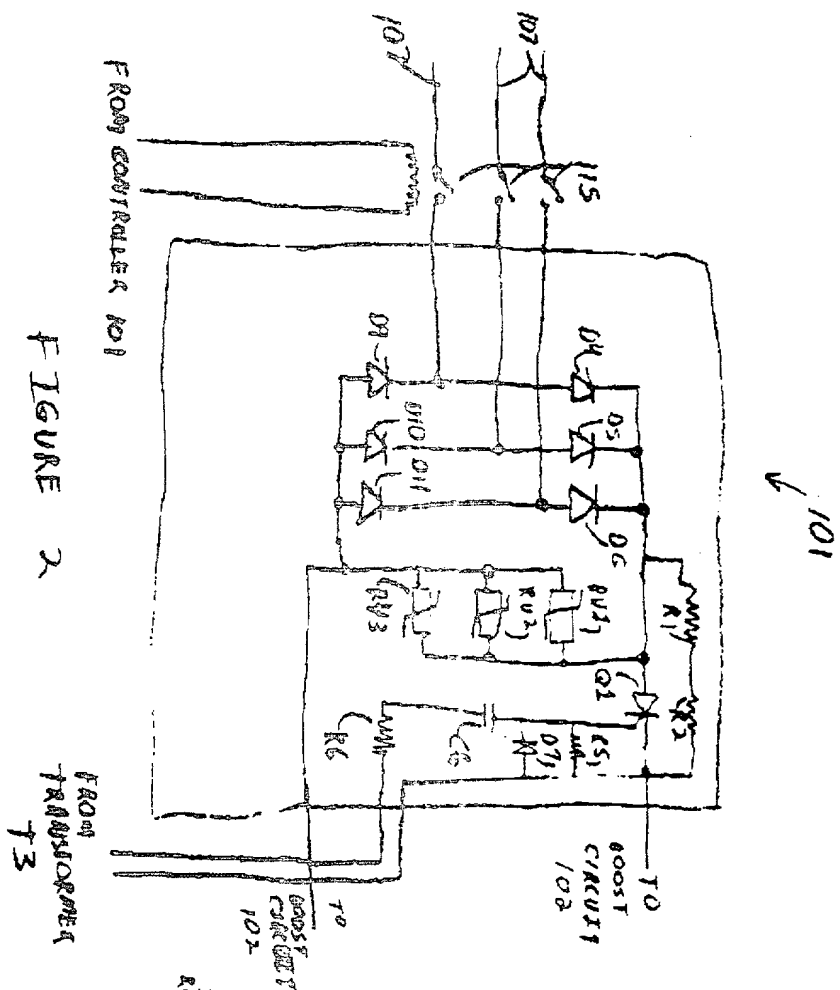 101
107
107
115
FROM CONTROLLER 101
D4
D5
D6
D9
D10
D11
R1
R2
Q1
RV1
RV2
RV3
R5
D7
C6
R6
TO
BOOST
CIRCUIT
102
TO
BOOST
CIRCUIT
102
FROM
TRANSFORMER
T3
FIGURE 2